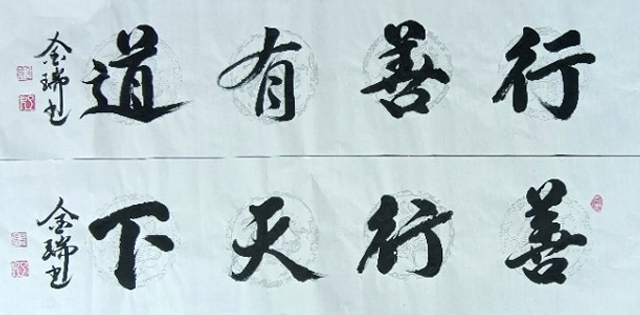 行善有道
金瑞书
善行天下
金瑞书